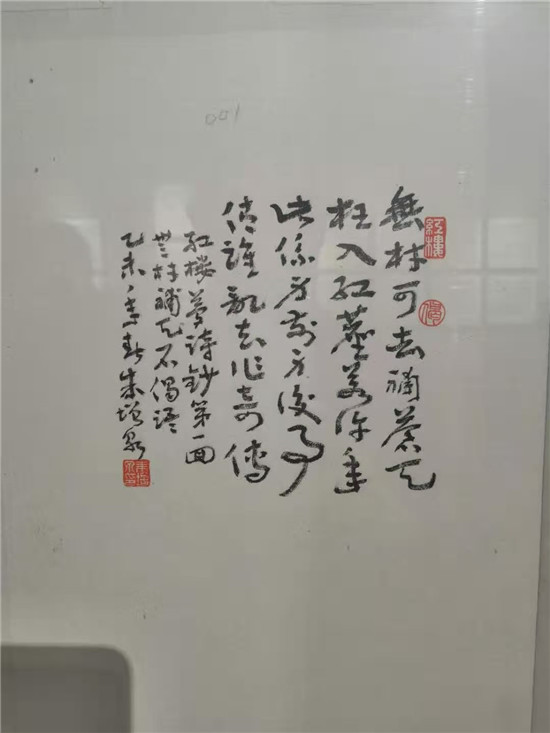 001
無材可去補蒼天
枉入紅塵若許年
此係身前身後事
倩誰記去作奇傳
紅楼夢詩鈔第一回
無材補天石偈語
乙未年朱增泉
紅樓